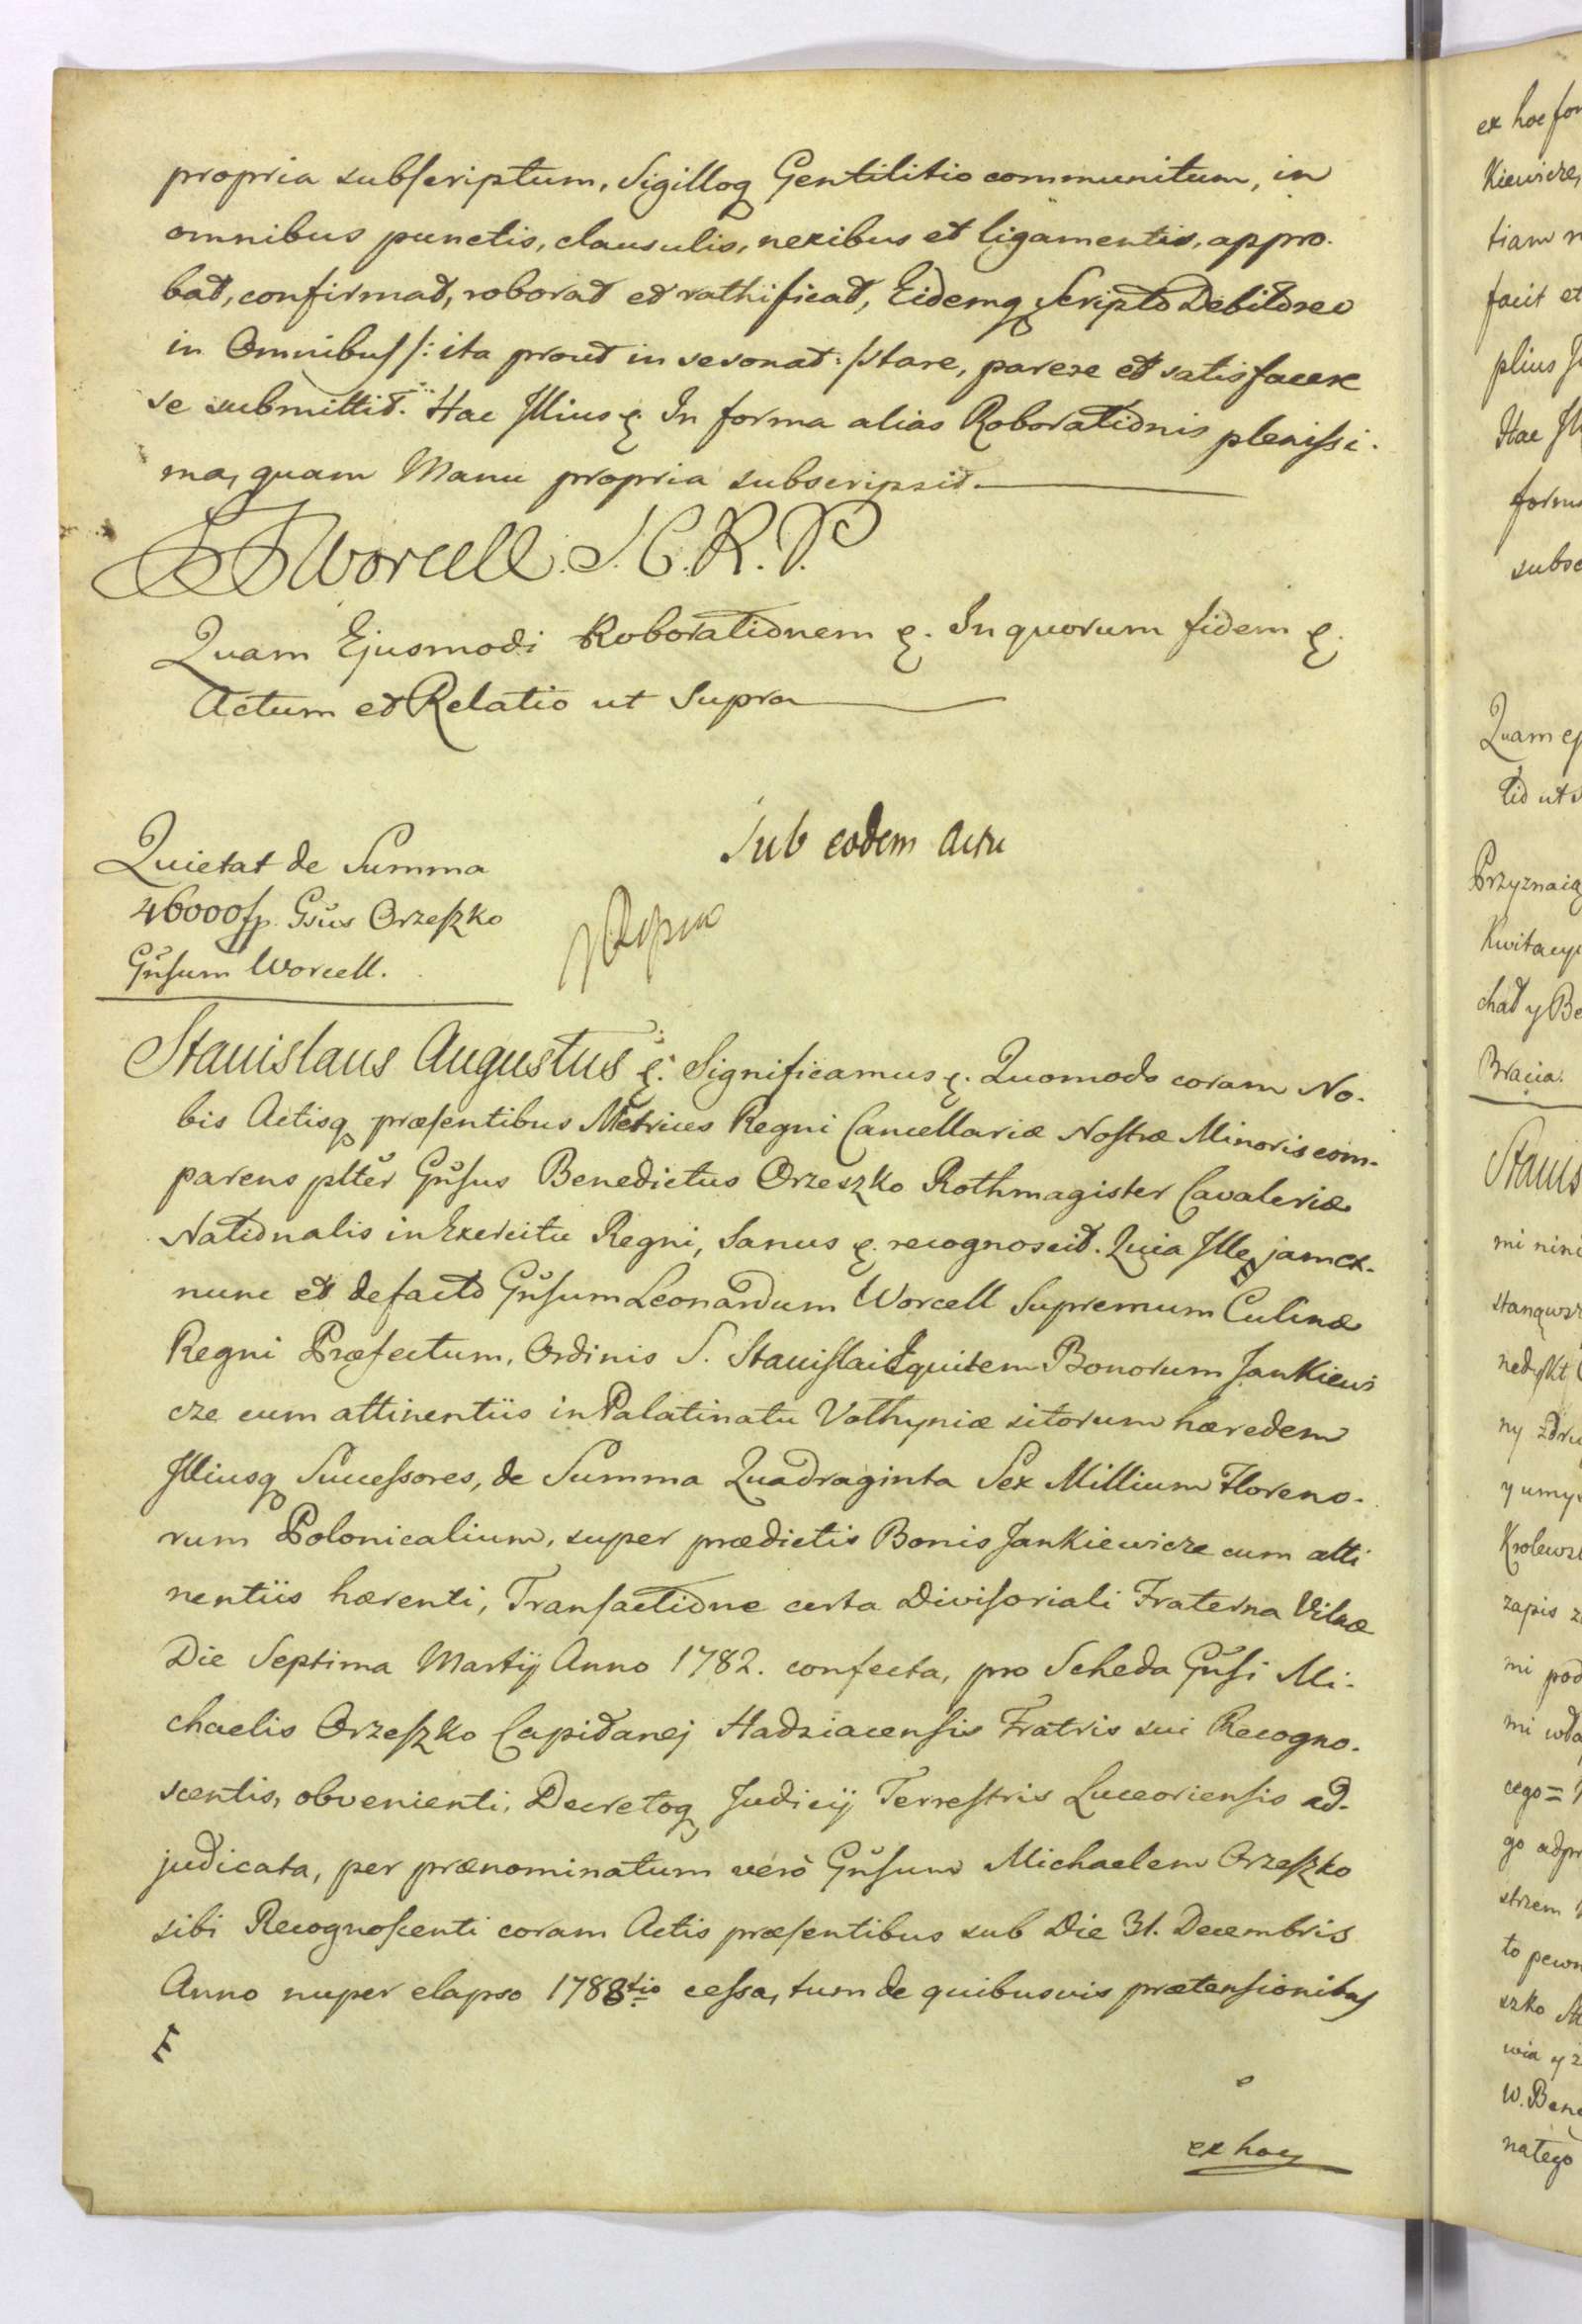 propria subscriptum, Sigilloq Gentilitio communitum, in
omnibus punctis, clausulis, nexibus et ligamentis, appro-
bat, confirmat, roborat et rathificat, Eidemq Scripto Debitoreo
in Omnibus /: ita prout in se sonat :/ stare, parere et satisfacere
se submittit. Hac Illius &. In forma alias Roborationis plenissi-
ma, quam Manu propria subscripsit.
Worcell. S.C.R.P.
Quam Ejusmodi Roborationem &. In quorum fidem &.
Actum et Relatio ut Supra
Sub eodem Actu
Quietat de Summa
46000 fp. Gsus Orzeszko
Gnsum Worcell.
Stanislaus Augustus &. Significamus &. Quomodo coram No-
bis Actisq præsentibus Metrices Regni Cancellariæ Nostræ Minoris com-
parens plter Gnsus Benedictus Orzeszko Rothmagister Cavaleriæ
Nationalis in Exercitu Regni, Sanus &. recognoscit. Quia Ille jam ex-
nunc et de facto Gnsum Leonardum Worcell Supremum Culinæ
Regni Præfectum, Ordinis S. Stanislai Equitem Bonorum Jankiewi
cze cum attinentiis in Palatinatu Volhyniæ sitorum hæredem
Illiusq Successores, de Summa Quadraginta Sex Millium Floreno-
rum Polonicalium, super prædictis Bonis Jankiewicze cum atti
nentiis hærenti, Transactione certa Divisoriali Fraterna Vilnæ
Die Septima Martij Anno 1782. confecta, pro Scheda Gnsi Mi-
chaelis Orzeszko Capitanej Hadziacensis Fratris sui Recogno-
scentis, obvenienti, Decretoq Judicij Terrestris Luceoriensis ad-
judicata, per prænominatum verò Gnsum Michaelem Orzeszko
sibi Recognoscenti coram Actis præsentibus sub Die 31. Decembris
Anno nuper elapso 1788tio cessa, tum de quibusvis prætensionibus
ex hoc
ex hoc
Kiewicze,
tiam
facit et
plius
Hac
Przyznaią
Bracia.
Stanis
zapis
mi pod
go
strzem
to pewn
szko
W. Bene
nałego